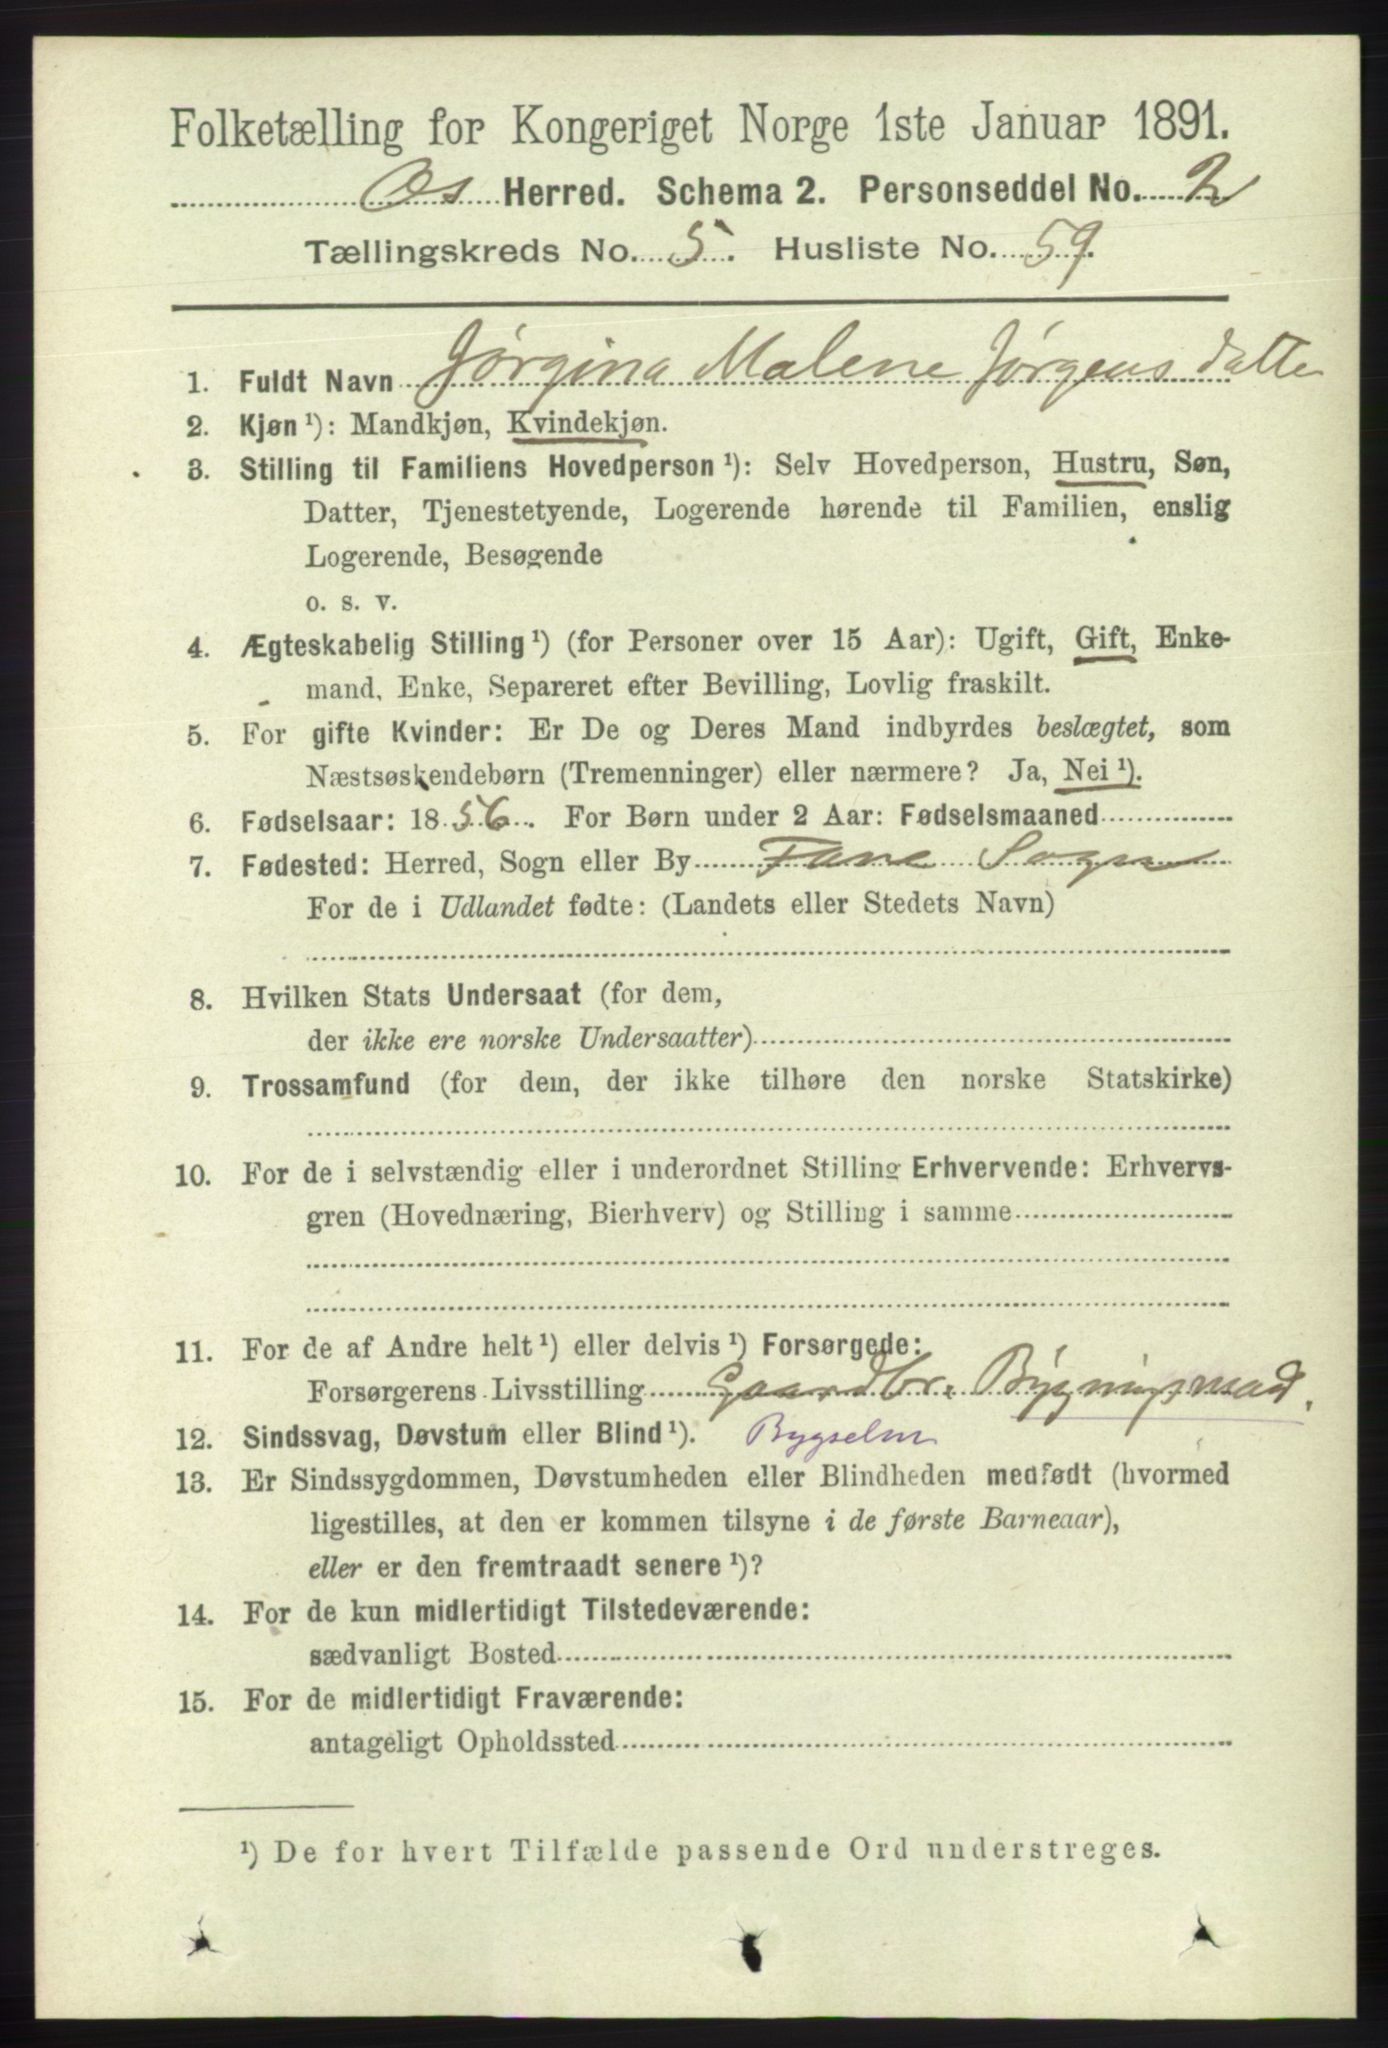 Folketælling for Kongeriget Norge 1ste Januar 1891.
Os Herred. Schema 2. Personseddel No. 2
Tællingskreds No. 5. Husliste No. 59.
1. Fuldt Navn Jørgina Malene Jørgensdatte
2. Kjøn ¹): Mandkjøn, Kvindekjøn.
3. Stilling til Familiens Hovedperson ¹): Selv Hovedperson, Hustru, Søn,
Datter, Tjenestetyende, Logerende hørende til Familien, enslig
Logerende, Besøgende
o. s. v.
4. Ægteskabelig Stilling ¹) (for Personer over 15 Aar): Ugift, Gift, Enke-
mand, Enke, Separeret efter Bevilling, Lovlig fraskilt.
5. For gifte Kvinder: Er De og Deres Mand indbyrdes beslægtet, som
Næstsøskendebørn (Tremenninger) eller nærmere? Ja, Nei ¹).
6. Fødselsaar: 1856. For Børn under 2 Aar: Fødselsmaaned
7. Fødested: Herred, Sogn eller By Fane Sogn
For de i Udlandet fødte: (Landets eller Stedets Navn)
8. Hvilken Stats Undersaat (for dem,
der ikke ere norske Undersaatter)
9. Trossamfund (for dem, der ikke tilhøre den norske Statskirke)
10. For de i selvstændig eller i underordnet Stilling Erhvervende: Erhvervs-
gren (Hovednæring, Bierhverv) og Stilling i samme
11. For de af Andre helt ¹) eller delvis ¹) Forsørgede:
Forsørgerens Livsstilling Gaardbr. Bygningsmad.
12. Sindssvag, Døvstum eller Blind ¹). Bygselm
13. Er Sindssygdommen, Døvstumheden eller Blindheden medfødt (hvormed
ligestilles, at den er kommen tilsyne i de første Barneaar),
eller er den fremtraadt senere ¹)?
14. For de kun midlertidigt Tilstedeværende:
sædvanligt Bosted
15. For de midlertidigt Fraværende:
antageligt Opholdssted
¹) De for hvert Tilfælde passende Ord understreges.